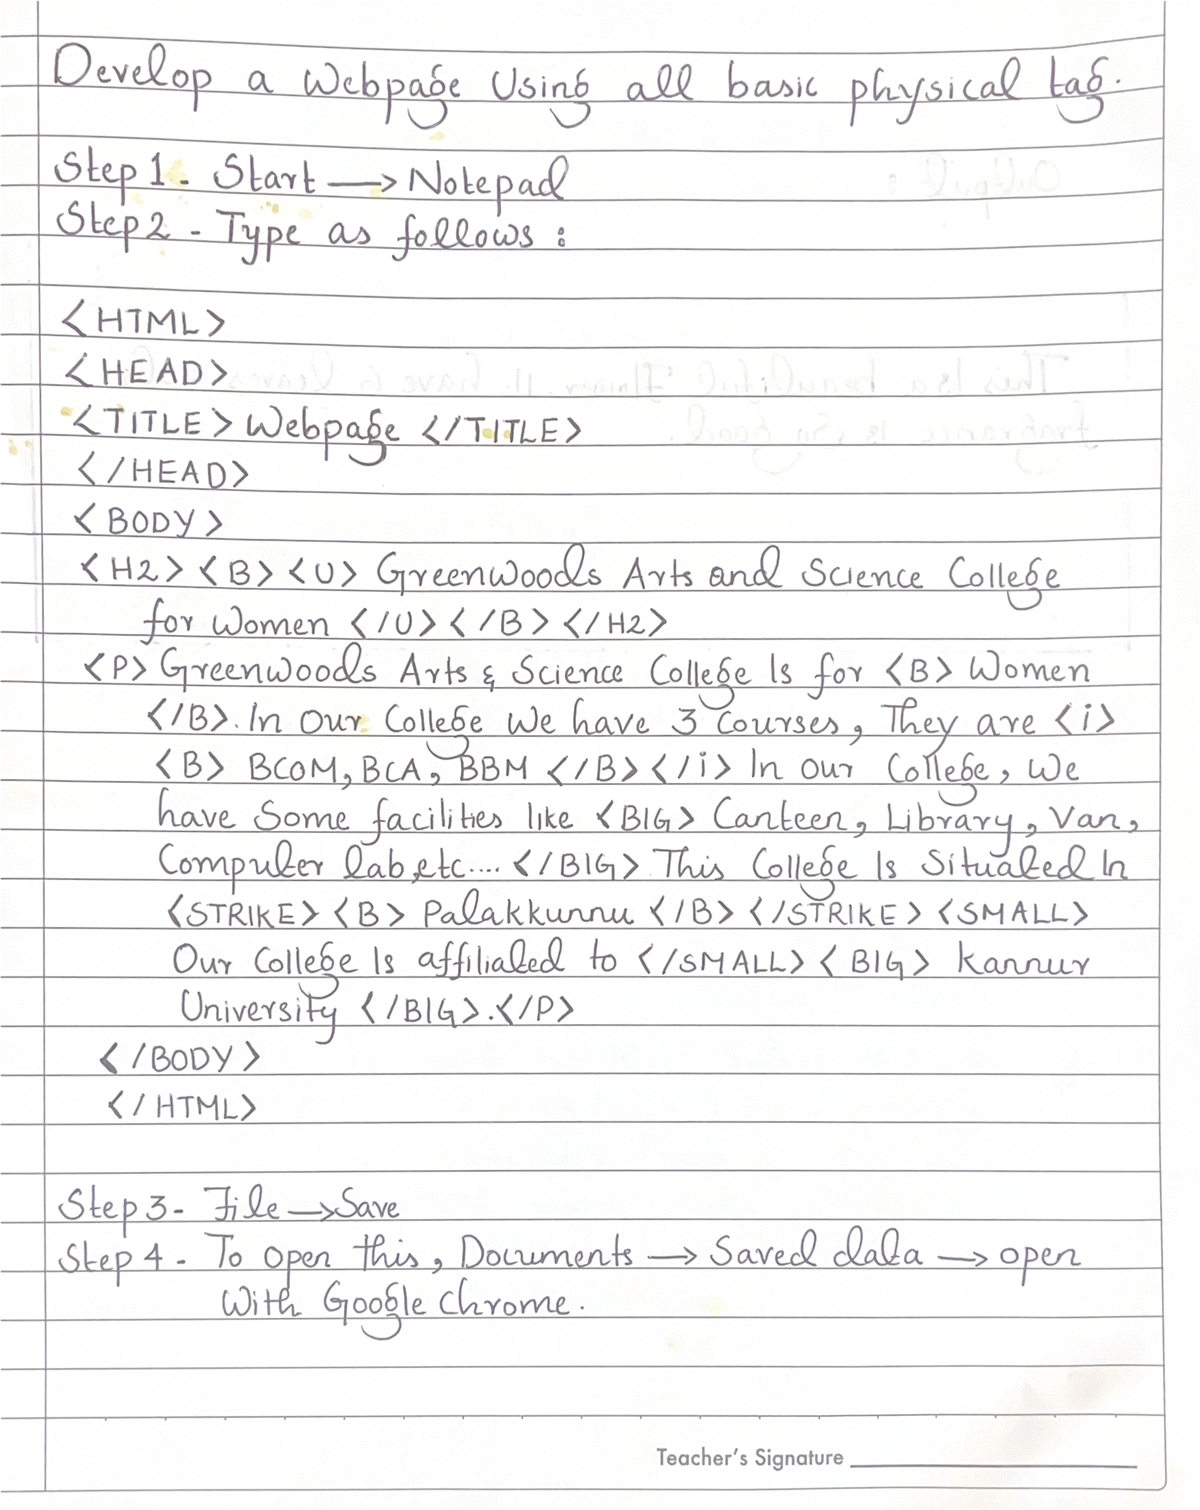 Develop a Webpage Using all basic physical tag.
Step 1 - Start → Notepad
Step 2 - Type as follows :
<HTML>
<HEAD>
<TITLE> Webpage </TITLE>
</HEAD>
<BODY>
<H2> <B> <U> Greenwoods Arts and Science College
for Women </U> </B> </H2>
<P> Greenwoods Arts & Science College Is for <B> Women
</B>. In Our College We have 3 Courses, They are <i>
<B> BCOM, BCA, BBM </B> </i> In our College, We
have Some facilities like <BIG> Canteen, Library, Van,
Computer lab, etc.... </BIG> This College Is Situated In
<STRIKE> <B> Palakkunnu </B> </STRIKE> <SMALL>
Our College Is affiliated to </SMALL> <BIG> Kannur
University </BIG>.</P>
</BODY>
</HTML>
Step 3 - File → Save
Step 4 - To open this, Documents → Saved data → open
With Google Chrome.
Teacher's Signature